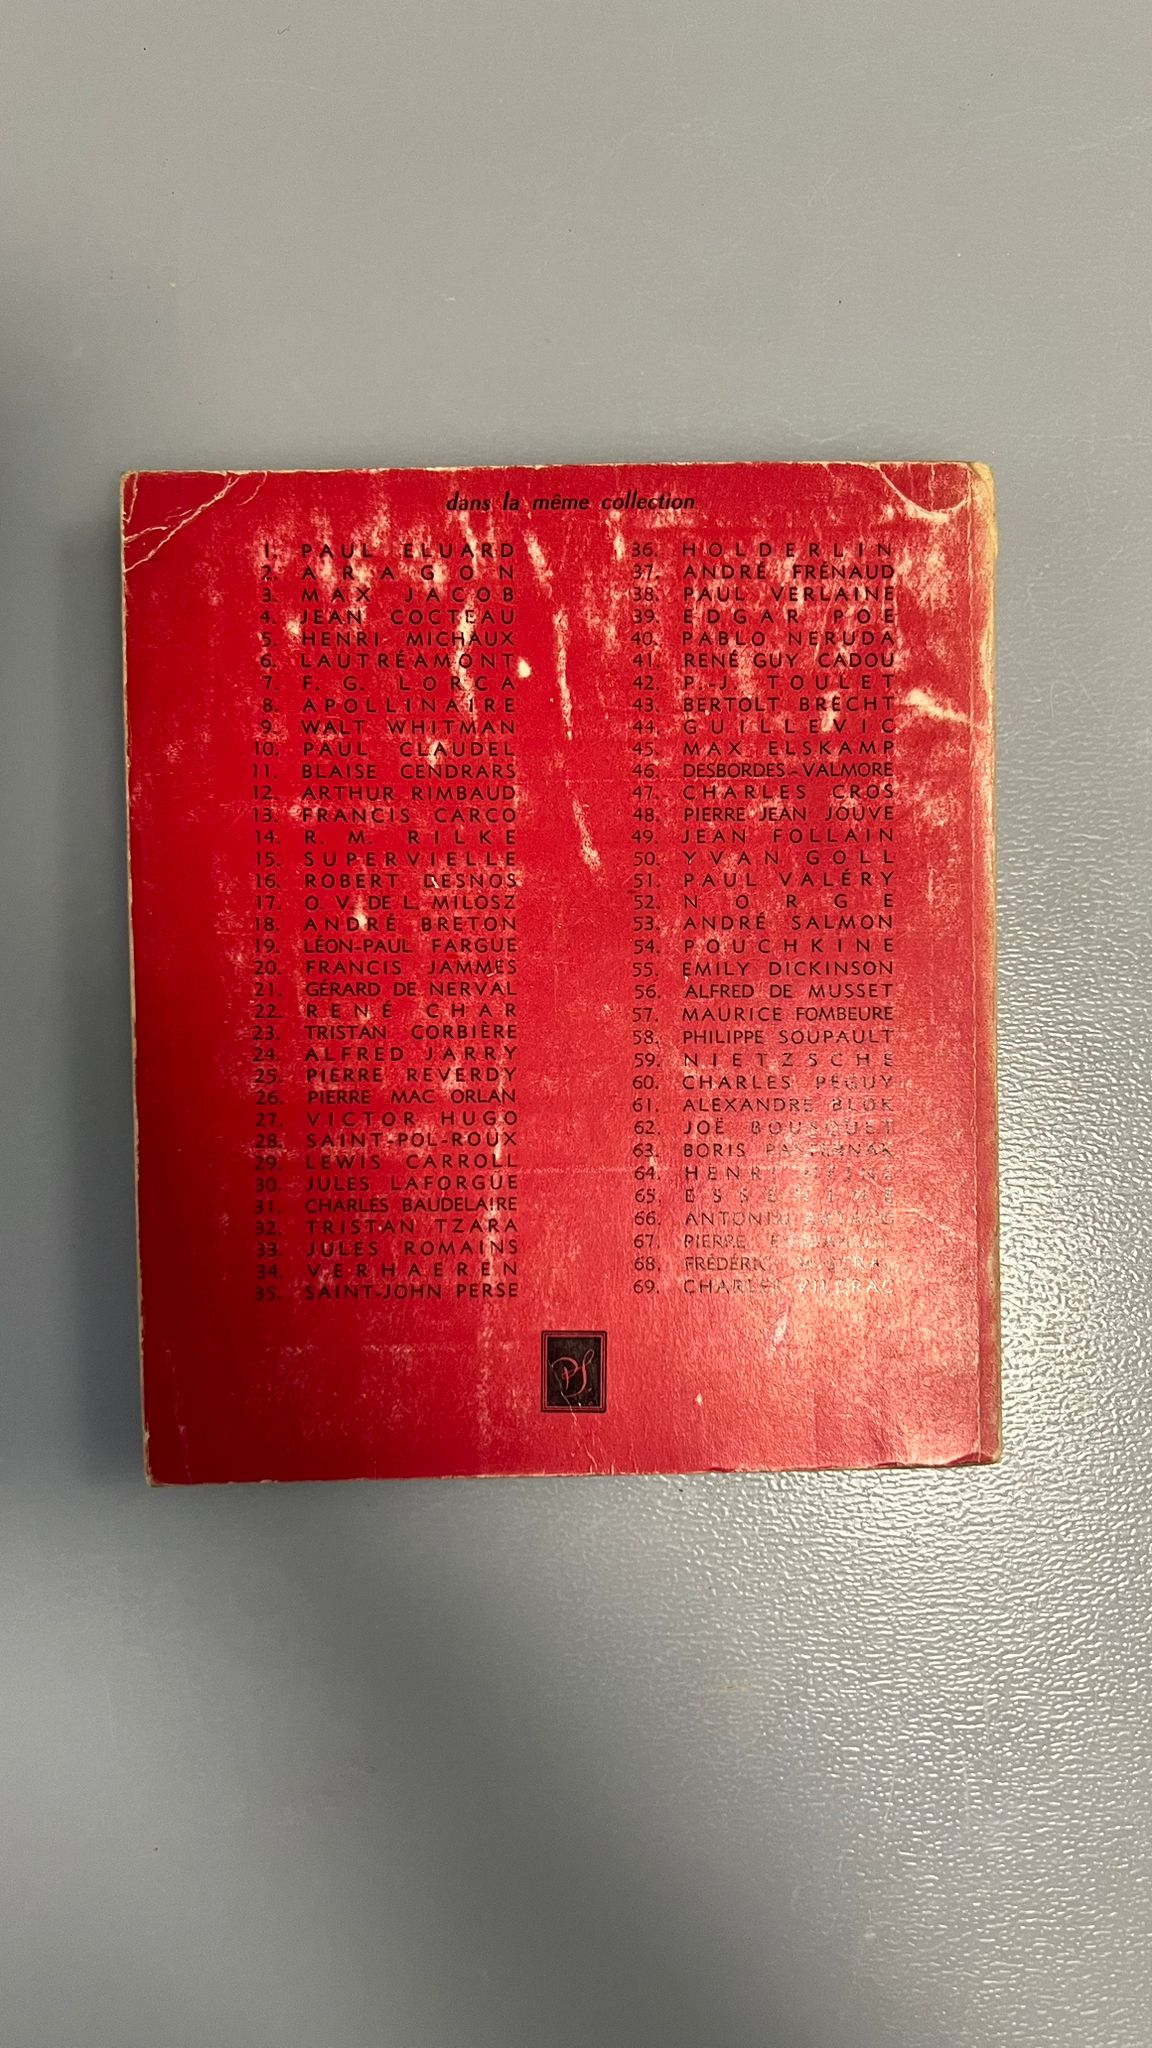 dans la même collection
1. PAUL ELUARD
2. ARAGON
3. MAX JACOB
4. JEAN COCTEAU
5. HENRI MICHAUX
6. LAUTRÉAMONT
7. F. G. LORCA
8. APOLLINAIRE
9. WALT WHITMAN
10. PAUL CLAUDEL
11. BLAISE CENDRARS
12. ARTHUR RIMBAUD
13. FRANCIS CARCO
14. R. M. RILKE
15. SUPERVIELLE
16. ROBERT DESNOS
17. O. V. DE L. MILOSZ
18. ANDRÉ BRETON
19. LÉON-PAUL FARGUE
20. FRANCIS JAMMES
21. GÉRARD DE NERVAL
22. RENÉ CHAR
23. TRISTAN CORBIÈRE
24. ALFRED JARRY
25. PIERRE REVERDY
26. PIERRE MAC ORLAN
27. VICTOR HUGO
28. SAINT-POL-ROUX
29. LEWIS CARROLL
30. JULES LAFORGUE
31. CHARLES BAUDELAIRE
32. TRISTAN TZARA
33. JULES ROMAINS
34. VERHAEREN
35. SAINT-JOHN PERSE
36. HOLDERLIN
37. ANDRÉ FRÉNAUD
38. PAUL VERLAINE
39. EDGAR POE
40. PABLO NERUDA
41. RENÉ GUY CADOU
42. P.-J. TOULET
43. BERTOLT BRECHT
44. GUILLEVIC
45. MAX ELSKAMP
46. DESBORDES-VALMORE
47. CHARLES CROS
48. PIERRE JEAN JOUVE
49. JEAN FOLLAIN
50. YVAN GOLL
51. PAUL VALÉRY
52. NORGE
53. ANDRÉ SALMON
54. POUCHKINE
55. EMILY DICKINSON
56. ALFRED DE MUSSET
57. MAURICE FOMBEURE
58. PHILIPPE SOUPAULT
59. NIETZSCHE
60. CHARLES PEGUY
61. ALEXANDRE BLOK
62. JOË BOUSQUET
63. BORIS PASTERNAK
64. HENRI HEINE
65. ESSENINE
66. ANTONIN ARTAUD
67. PIERRE
68. FRÉDÉRIC MISTRAL
69. CHARLES VILDRAC
PS.